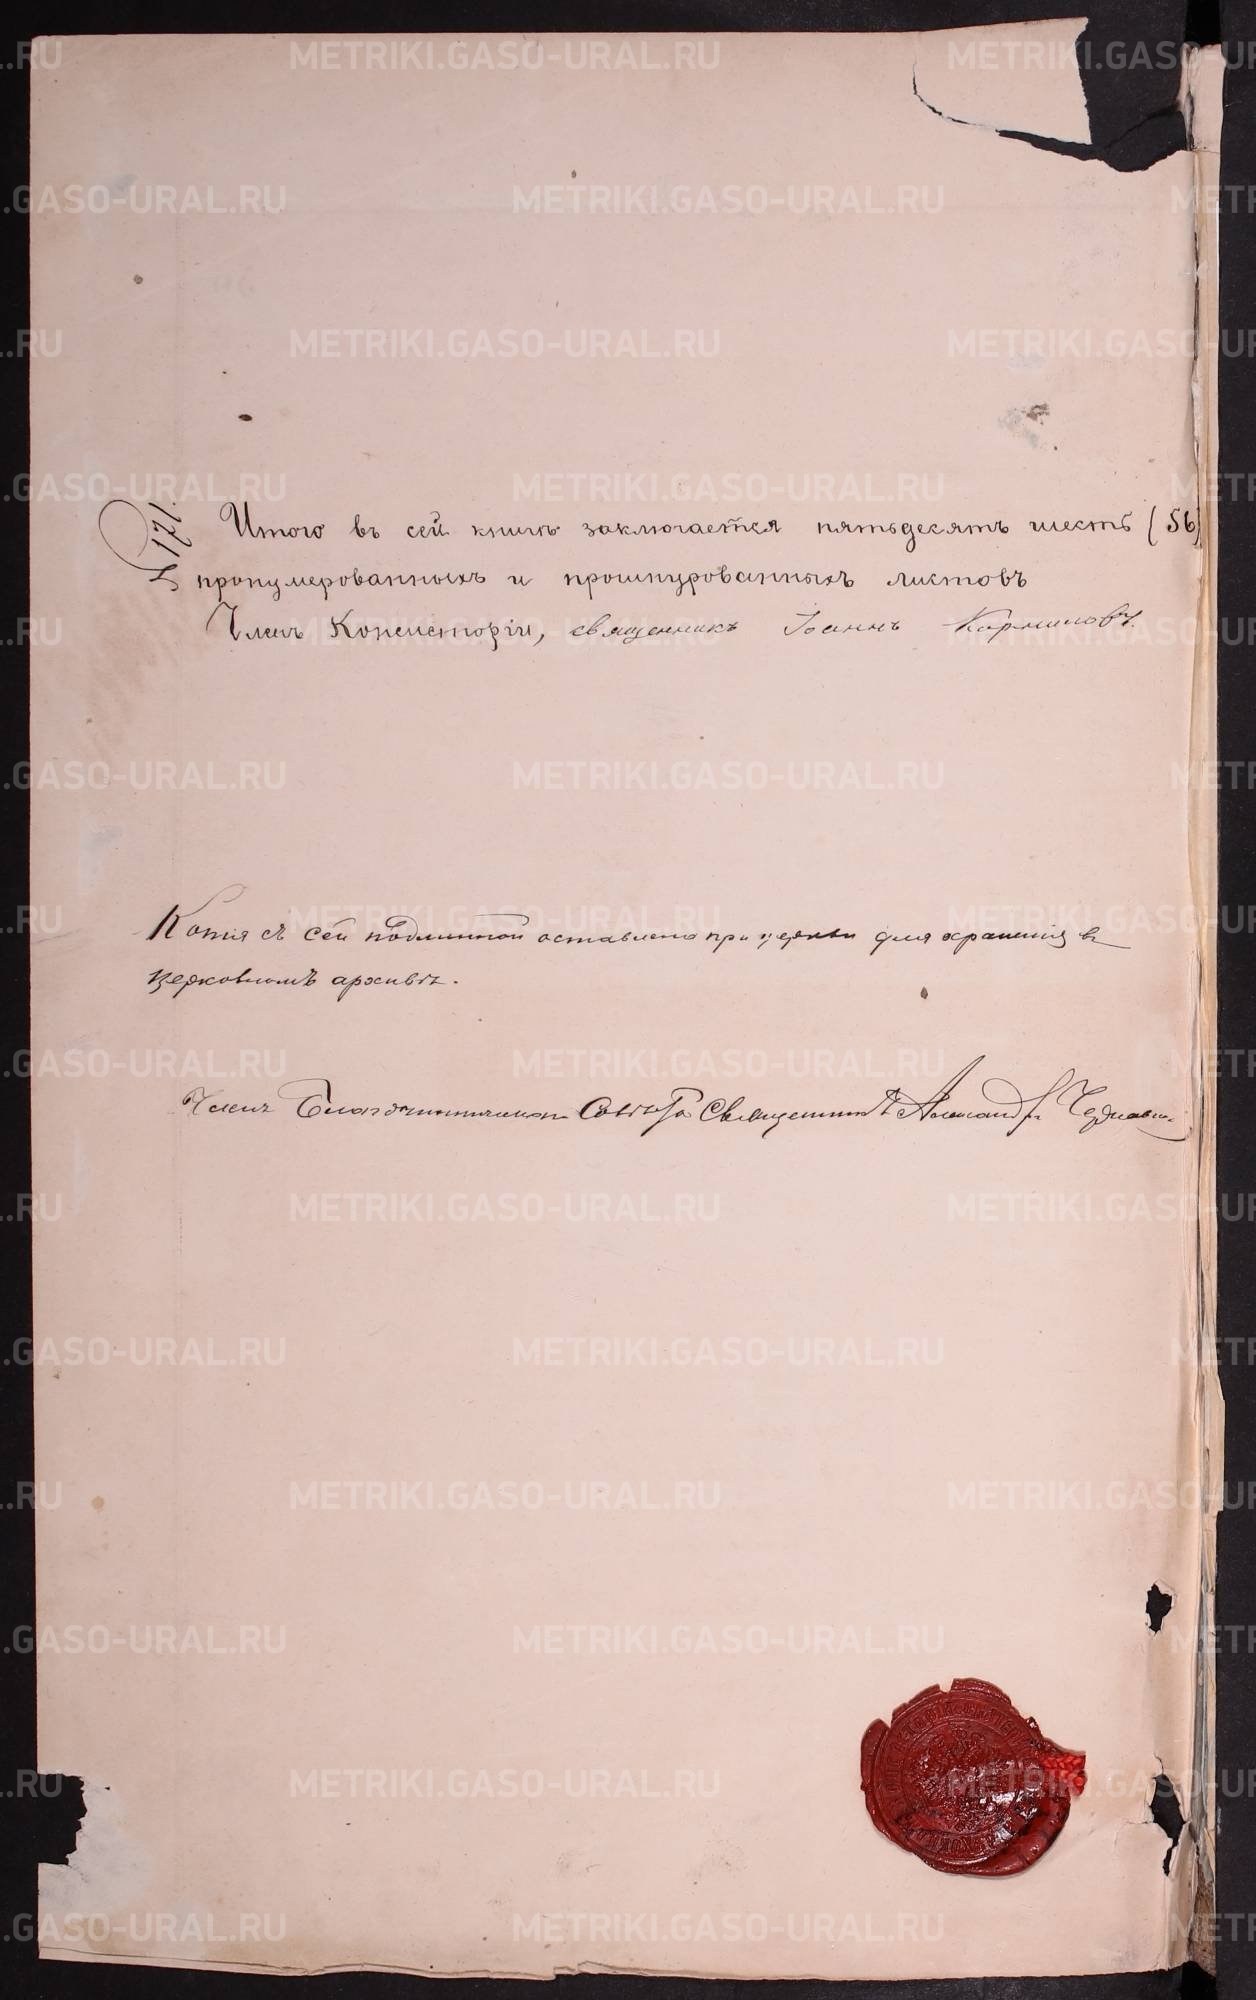 171.
Итого въ сей книгѣ заключается пятьдесятъ шесть (56)
пронумерованныхъ и прошнурованныхъ листовъ
Членъ Консисторіи, священникъ Іоаннъ Корниловъ.
Копія съ сей подлинной оставлена при церкви для храненія въ
церковномъ архивѣ.
Членъ Благочинническаго Совѣта Священникъ Александръ
METRIKI.GASO-URAL.RU